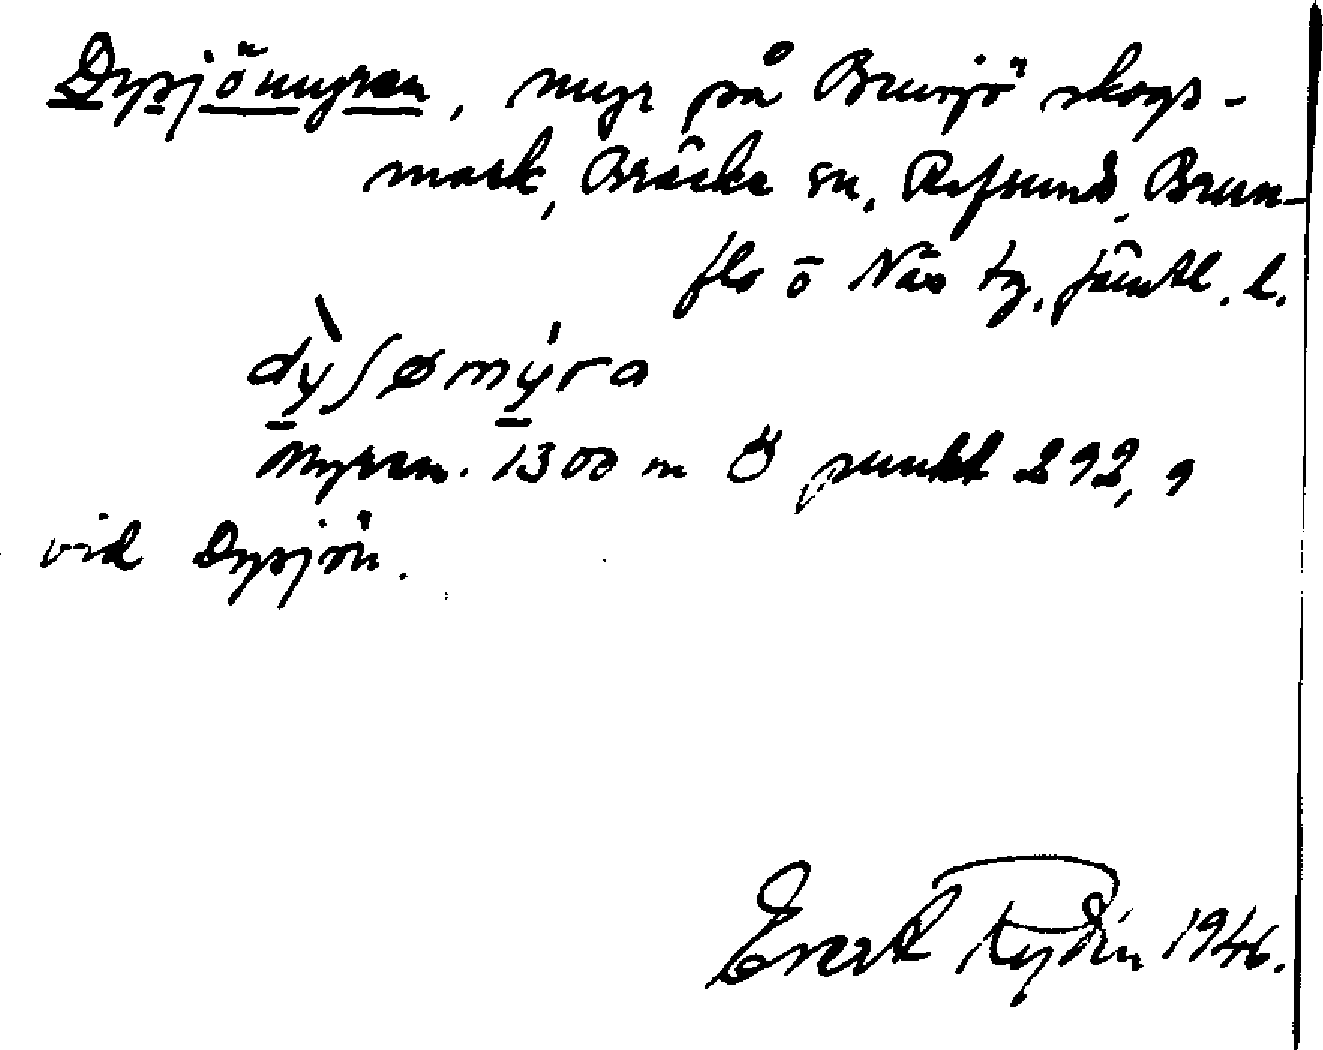 Dysjömyren, myr på Brunsjö skogs-
mark, Bräcke sn, Refsunds, Brun-
flo o Näs tg. Jämtl. l.
dỳʃømýra
Myren. 1300 m Ö punkt 292,9
vid Dysjön.
Evert 1946.